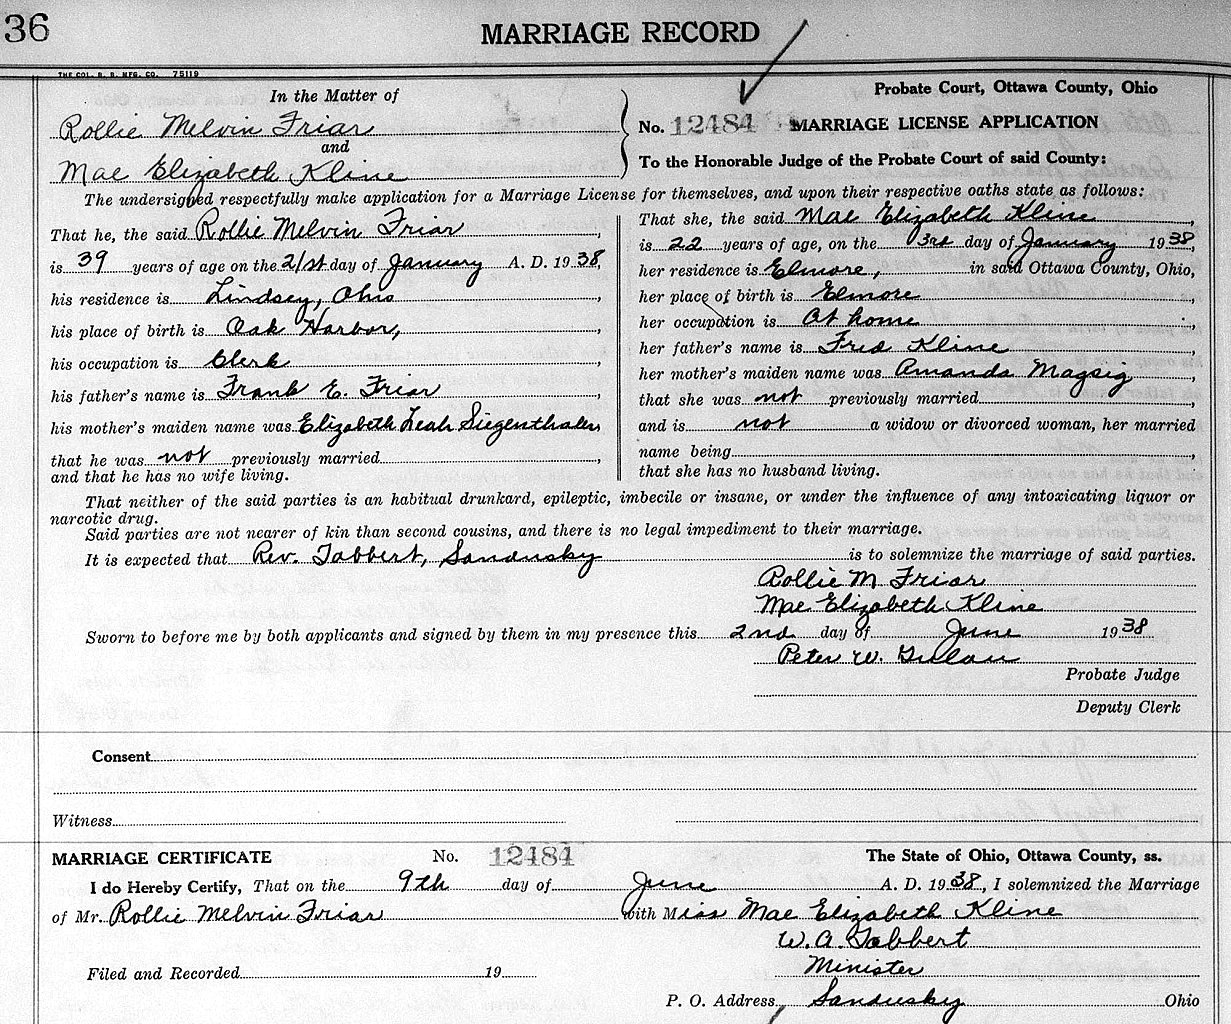 36
MARRIAGE RECORD
THE COL. B. B. MFG. CO. 75119
In the Matter of
Rollie Melvin Friar
and
Mae Elizabeth Kline
Probate Court, Ottawa County, Ohio
No. 12484 MARRIAGE LICENSE APPLICATION
To the Honorable Judge of the Probate Court of said County:
The undersigned respectfully make application for a Marriage License for themselves, and upon their respective oaths state as follows:
That he, the said Rollie Melvin Friar
is 39 years of age on the 21st day of January A. D. 1938,
his residence is Lindsey, Ohio,
his place of birth is Oak Harbor,,
his occupation is Clerk,
his father's name is Frank E. Friar,
his mother's maiden name was Elizabeth Leah Siegenthaler,
that he was not previously married,
and that he has no wife living.
That she, the said Mae Elizabeth Kline,
is 22 years of age, on the 3rd day of January 1938,
her residence is Elmore, in said Ottawa County, Ohio,
her place of birth is Elmore,
her occupation is At home,
her father's name is Fred Kline,
her mother's maiden name was Amanda Magsig,
that she was not previously married,
and is not a widow or divorced woman, her married
name being,
that she has no husband living.
That neither of the said parties is an habitual drunkard, epileptic, imbecile or insane, or under the influence of any intoxicating liquor or
narcotic drug.
Said parties are not nearer of kin than second cousins, and there is no legal impediment to their marriage.
It is expected that Rev. Tabbert, Sandusky is to solemnize the marriage of said parties.
Rollie M Friar
Mae Elizabeth Kline
Sworn to before me by both applicants and signed by them in my presence this 2nd day of June 1938
Peter W.
Probate Judge
Deputy Clerk
Consent
Witness
MARRIAGE CERTIFICATE No. 12484 The State of Ohio, Ottawa County, ss.
I do Hereby Certify, That on the 9th day of June A. D. 1938, I solemnized the Marriage
of Mr. Rollie Melvin Friar with Miss Mae Elizabeth Kline
W. A. Tabbert
Filed and Recorded 19
Minister
P. O. Address Sandusky Ohio